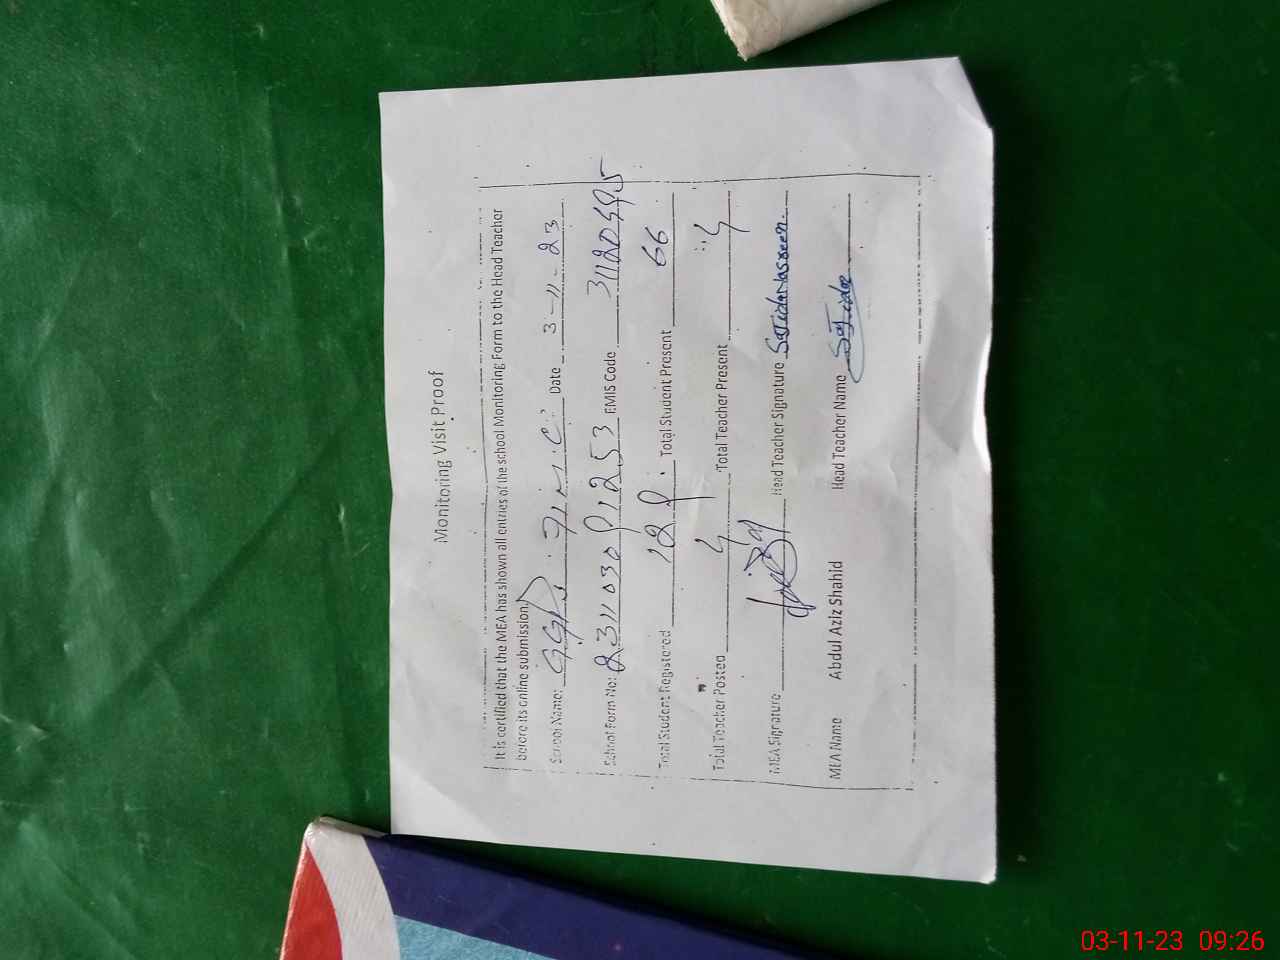 Monitoring Visit Proof
It is certified that the MEA has shown all entries of the school Monitoring Form to the Head Teacher
before its online submission.
School Name: GGPS Date 3-11-23
School Form No: 231103091253 EMIS Code 31120495
Total Student Registered 129 Total Student Present 66
Total Teacher Posted 4 Total Teacher Present 4
MEA Signature Head Teacher Signature Sajida Nasreen
MEA Name Abdul Aziz Shahid Head Teacher Name Sajida
03-11-23 09:26